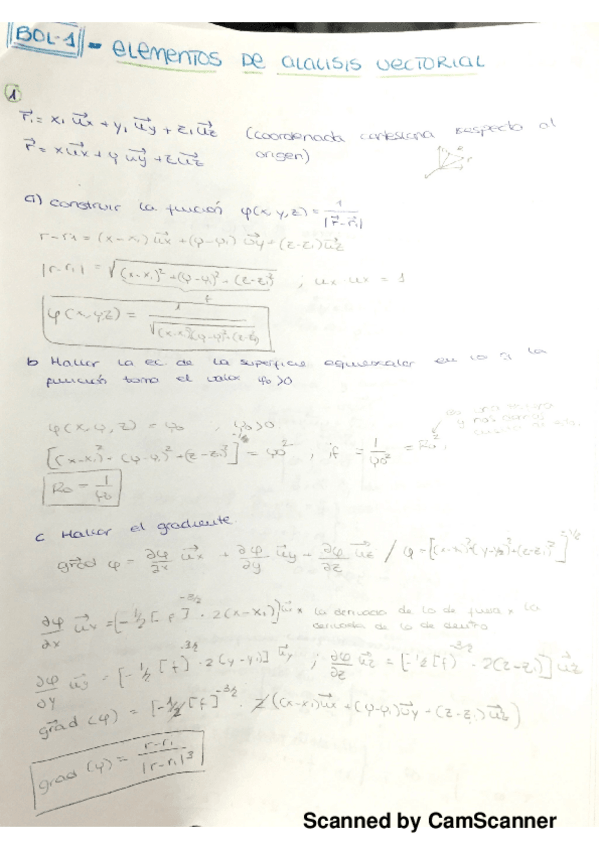 BOL-1 - ELEMENTOS DE ALALISIS VECTORIAL
1
r⃗₁ = x₁ u⃗x + y₁ u⃗y + z₁ u⃗z (coordenada cartesiana respecto al
r⃗ = x u⃗x + y u⃗y + z u⃗z origen)
a) construir la función φ(x,y,z) = 1/|r⃗-r⃗₁|
r-r₁ = (x-x₁) u⃗x + (y-y₁) u⃗y + (z-z₁) u⃗z
|r-r₁| = √((x-x₁)² + (y-y₁)² + (z-z₁)²) ; ux · ux = 1
φ(x,y,z) = 1/√((x-x₁)²+(y-y₁)²+(z-z₁)²)
b Hallar la ec. de la superficie equiescalar en la la
función toma el valor φ₀>0
φ(x,y,z) = φ₀ , φ₀>0
[(x-x₁)² + (y-y₁)² + (z-z₁)²]^-1/2 = φ₀ , if = 1/φ₀² = R₀²
R₀ = 1/φ₀
c Hallar el gradiente
grad φ = ∂φ/∂x u⃗x + ∂φ/∂y u⃗y + ∂φ/∂z u⃗z / φ = [(x-x₁)²+(y-y₁)²+(z-z₁)²]^-1/2
∂φ/∂x u⃗x = [-1/2 [f]^-3/2 · 2(x-x₁)] u⃗x la derivada de lo de fuera x la
derivada de lo de dentro
∂φ/∂y u⃗y = [-1/2 [f]^-3/2 · 2(y-y₁)] u⃗y ; ∂φ/∂z u⃗z = [-1/2 [f]^-3/2 · 2(z-z₁)] u⃗z
grad (φ) = [-1/2 [f]^-3/2 · 2 ((x-x₁)u⃗x + (y-y₁)u⃗y + (z-z₁)u⃗z)
grad (φ) = r-r₁/|r-r₁|³
Scanned by CamScanner